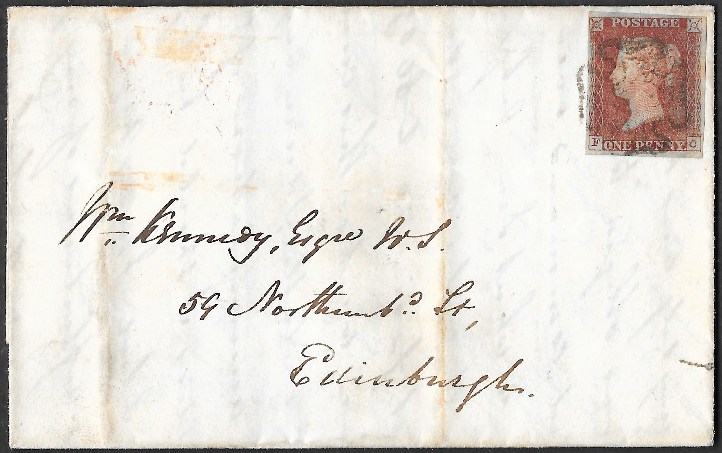 POSTAGE
F ONE PENNY C
Wm Kennedy, Esqre W.S.
59 Northumbd. St,
Edinburgh.